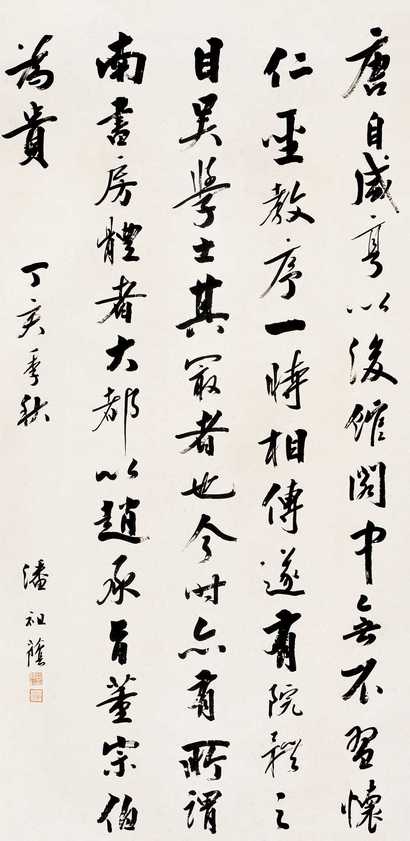 唐自咸亨以後館閣中無不習懷
仁聖教序一時相傳遂有院體之
目吳學士其最者也今時亦有所謂
南書房體者大都以趙承旨董宗伯
為貴
丁亥季秋
潘祖蔭